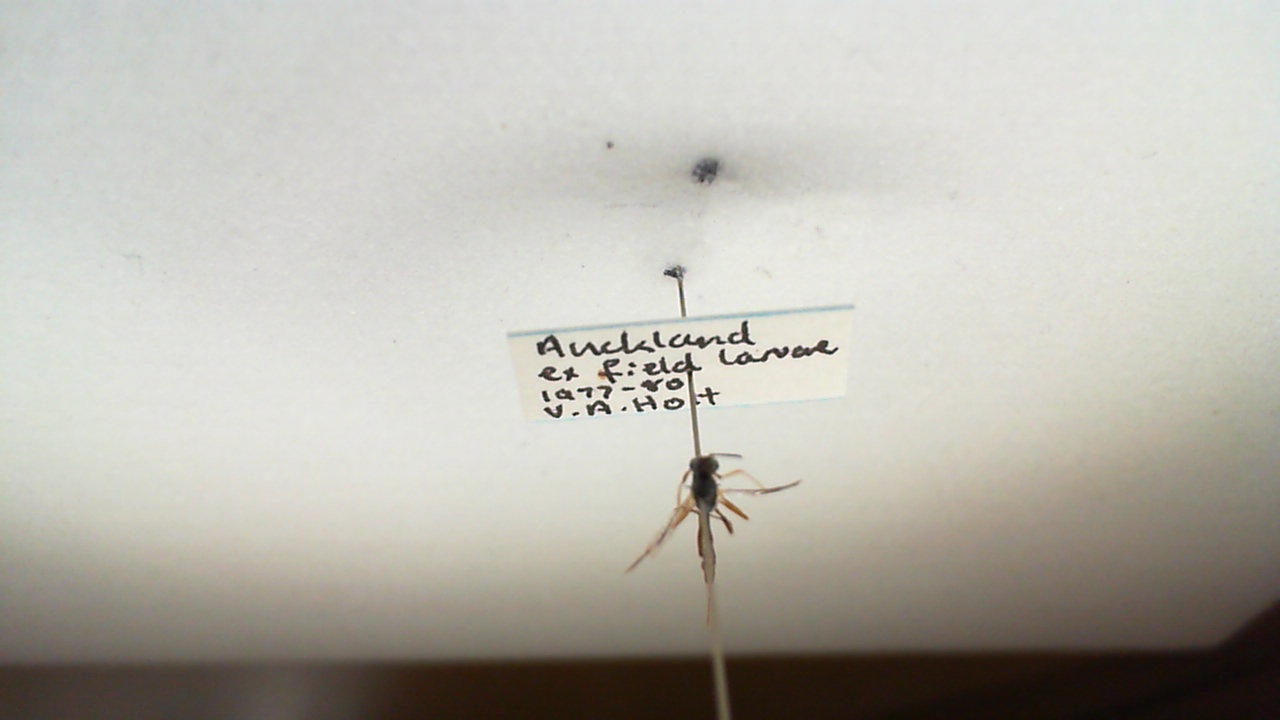 Auckland
ex field larvae
1977-80
V.A.Holt